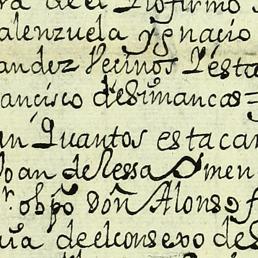 ra de el Profirmo
alenzuela ygnacio
andez Vecinos Vesta
rancisco deSimancas=
an Quantos estacar
Joan de Ressa men
r. obpo Don Alonso f
ria deelconsexo deS